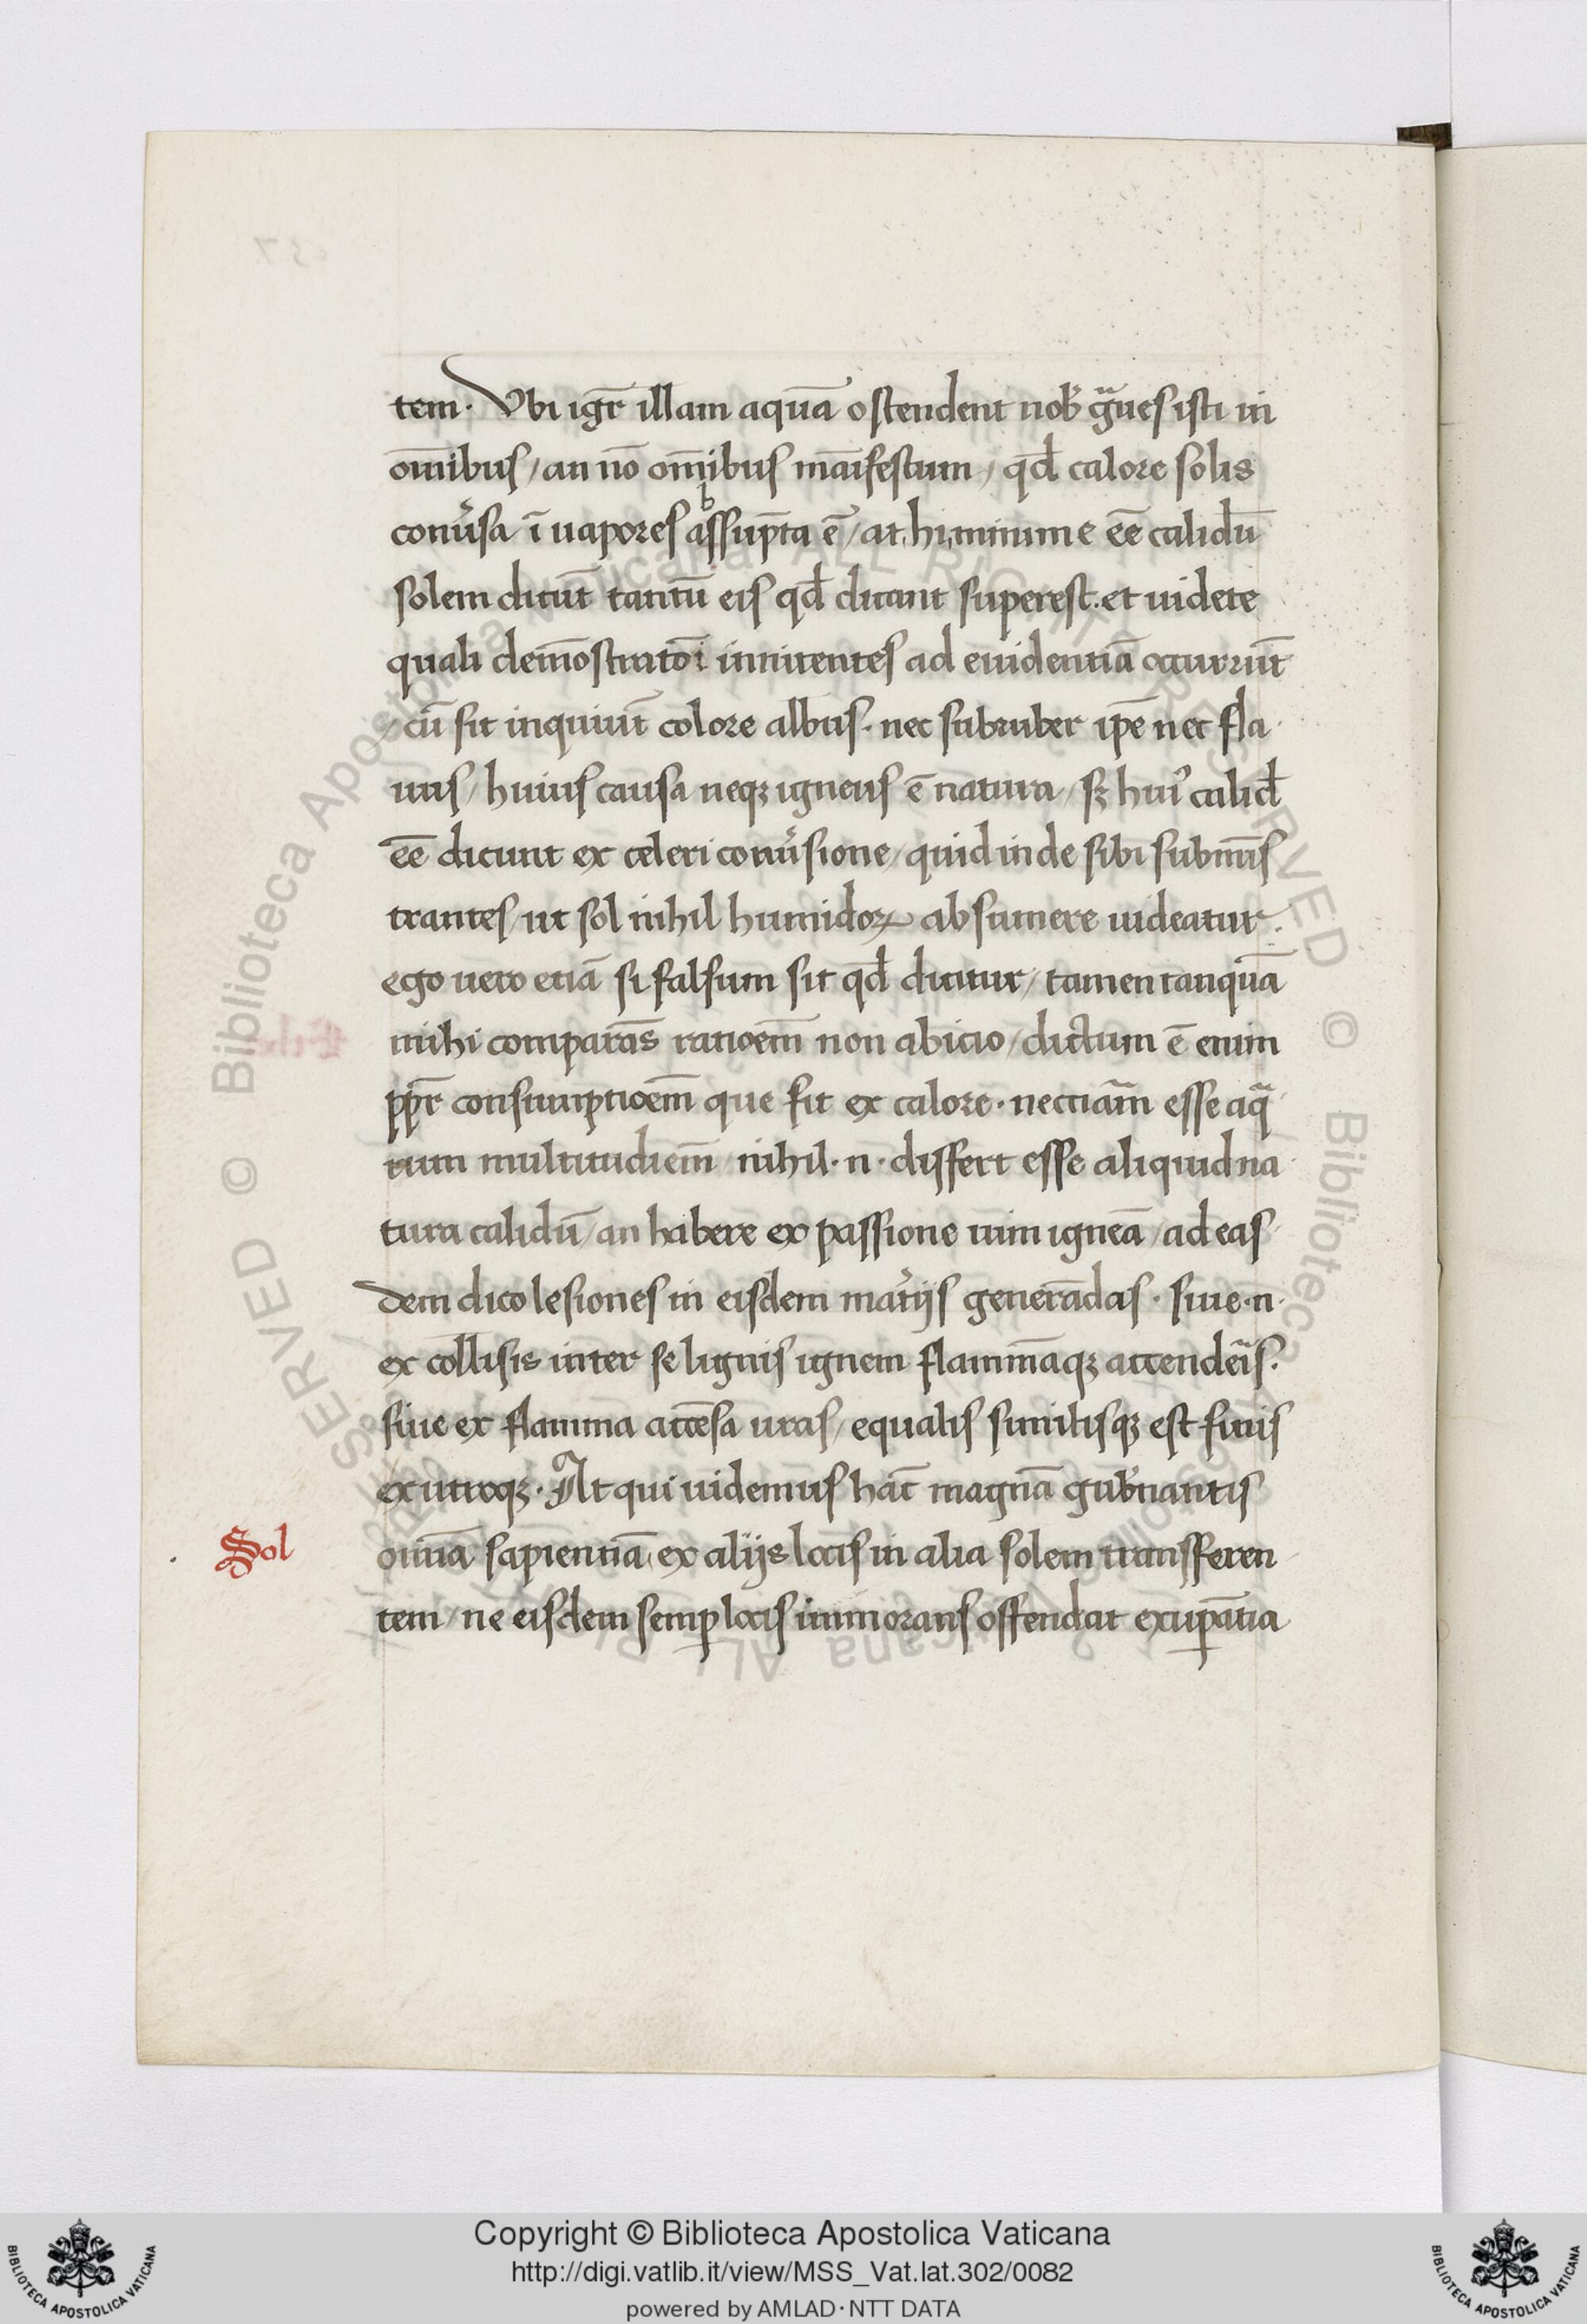 tem. Vbi igr̄ illam aquā ostendent nob̉ gͣues isti in
om̄ibus / an nō om̄ibus māifestum / qd̄ calore solis
conu̓sa ī uapores assūpta ē / at hi minime eē calidū
b
solem dicūt tantū eis qd̄ dicant superest. et uidete
quali demōstratōi innitentes ad euidentiā occurrūt
/ cū sit inquiūt colore albus. nec subruber ip̄e nec fla
uus / huius causa neqꝫ igneus ē natura / sꝫ huiꝰ calid̄
eē dicunt ex celeri conu̓sione / quid inde sibi submīs
trantes / ut sol nihil humidoꝝ absumere uideatur.
ego uero etiā si falsum sit qd̄ dicitur / tamen tanquā
mihi comparās ratioem̄ non abicio / dictum ē enim
ꝑpr̄ consumptioem̄ que fit ex calore. necciam̄ esse aqͣ
rum multitudiem̄ nihil. n. differt esse aliquid na
tura calidū / an habere ex passione uim igneā / ad eas
dem dico lesiones in eisdem mat̓ijs generādas. siue. n.
ex collisis inter se lignis ignem flammāqꝫ accendeīs.
siue ex flamma accēsa uras / equalis similisqꝫ est finis
ex utroqꝫ. At qui uidemus hāc magnā gub̓nantis
Sol
omnia sapientiā ex alijs locis in alia solem transferen
tem / ne eisdem semꝑ locis immorans offendat exuꝑātia
Copyright © Biblioteca Apostolica Vaticana
http://digi.vatlib.it/view/MSS_Vat.lat.302/0082
powered by AMLAD · NTT DATA